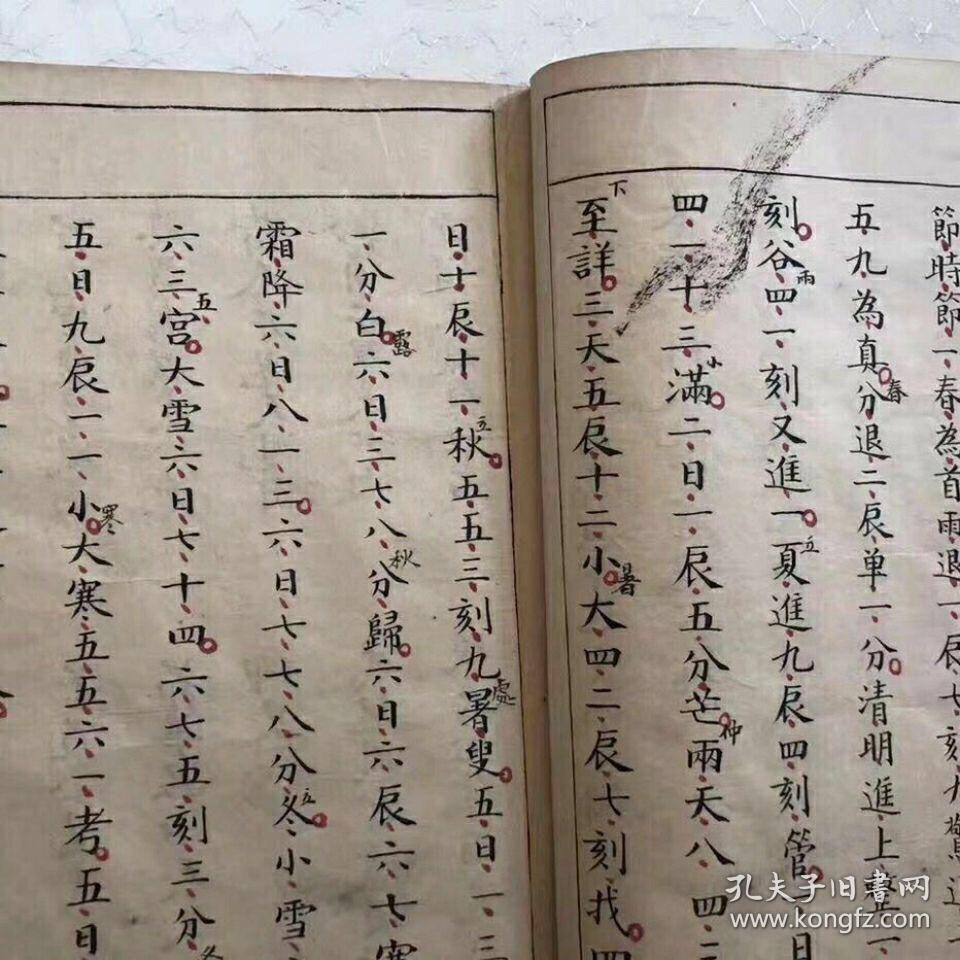 節時節一春為首雨退一辰七刻九驚退
五九為真春分退二辰单一分清明進上整一
刻谷雨四一刻又進一立夏進九辰四刻管日
四一十三小滿二日一辰五分芒种兩天八四二
下至詳三天五辰十二小暑大四二辰七刻找四
日十辰十一立秋五五三刻九處暑叟五日一三
一分白露六日三七八秋分歸六日六辰六七寒
霜降六日八一三六日七七八分立冬小雪
六三五宫大雪六日七十四六七五刻三分冬
五日九辰一一小寒大寒五五六一考五日
孔夫子旧書网
www.kongfz.com